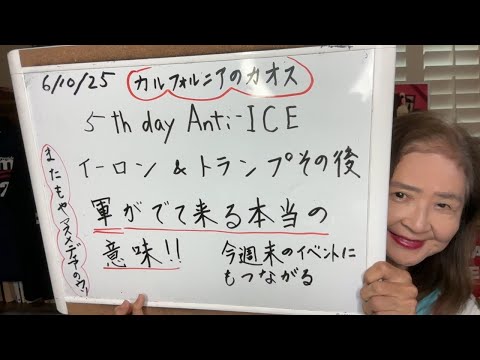 6/10/25
カルフォルニアのカオス
5th day Anti-ICE
イーロン & トランプその後
軍がでて来る本当の
意味!!
今週末のイベントに
もつながる
またもやマスメディアのウソ